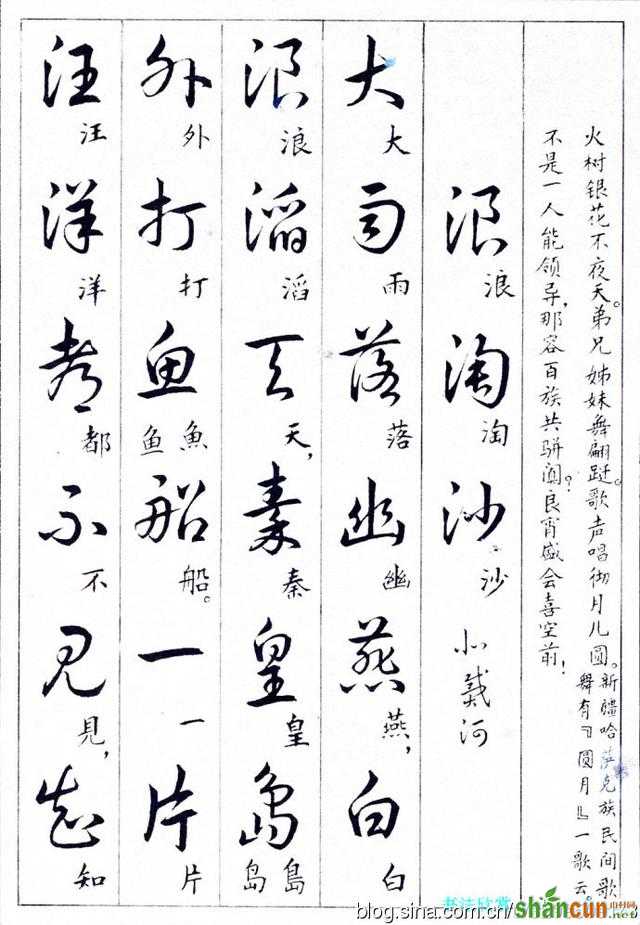 火树银花不夜天。弟兄姊妹舞翩跹。歌声唱彻月儿圆。
新疆哈萨克族民间歌
舞有『圆月』一歌云。
不是一人能领导,那容百族共骈阗?良宵盛会喜空前!
浪淘沙 北戴河
浪淘沙
大雨落幽燕白
大雨落幽燕,白
浪滔天秦皇岛
浪滔天,秦皇島岛
外打鱼船一片
外打魚鱼船。一片
汪洋都不见知
汪洋都不見,知
书法欣赏
shancun
blog.sina.com.cn